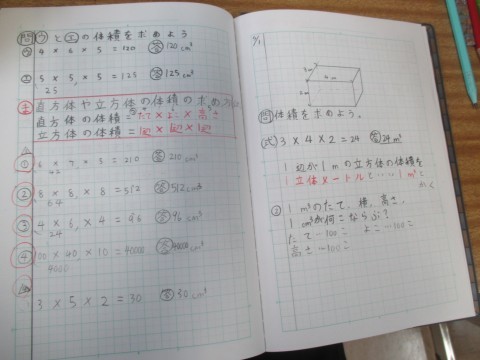 問 ウとエの体積を求めよう
ウ 4 × 6 × 5 = 120 答 120 cm³
エ 5 × 5 × 5 = 125 答 125 cm³
25
直方体や立方体の体積の求め方
直方体の体積 = たて × よこ × 高さ
立方体の体積 = 一辺 × 一辺 × 一辺
① 6 × 7 × 5 = 210 答 210 cm³
42
② 8 × 8 × 8 = 512 答 512 cm³
64
③ 4 × 6 × 4 = 96 答 96 cm³
24
④ 100 × 40 × 10 = 40000 答 40000 cm³
4000
3 × 5 × 2 = 30 答 30 cm³
問 体積を求めよう。
(式) 3 × 4 × 2 = 24 答 24 m³
1辺が1mの立方体の体積を
1立方メートルで……1m³と
かく
② 1m³のたて、横、高さ、
1cm³が何こならぶ?
たて…100こ よこ…100こ
高さ…100こ